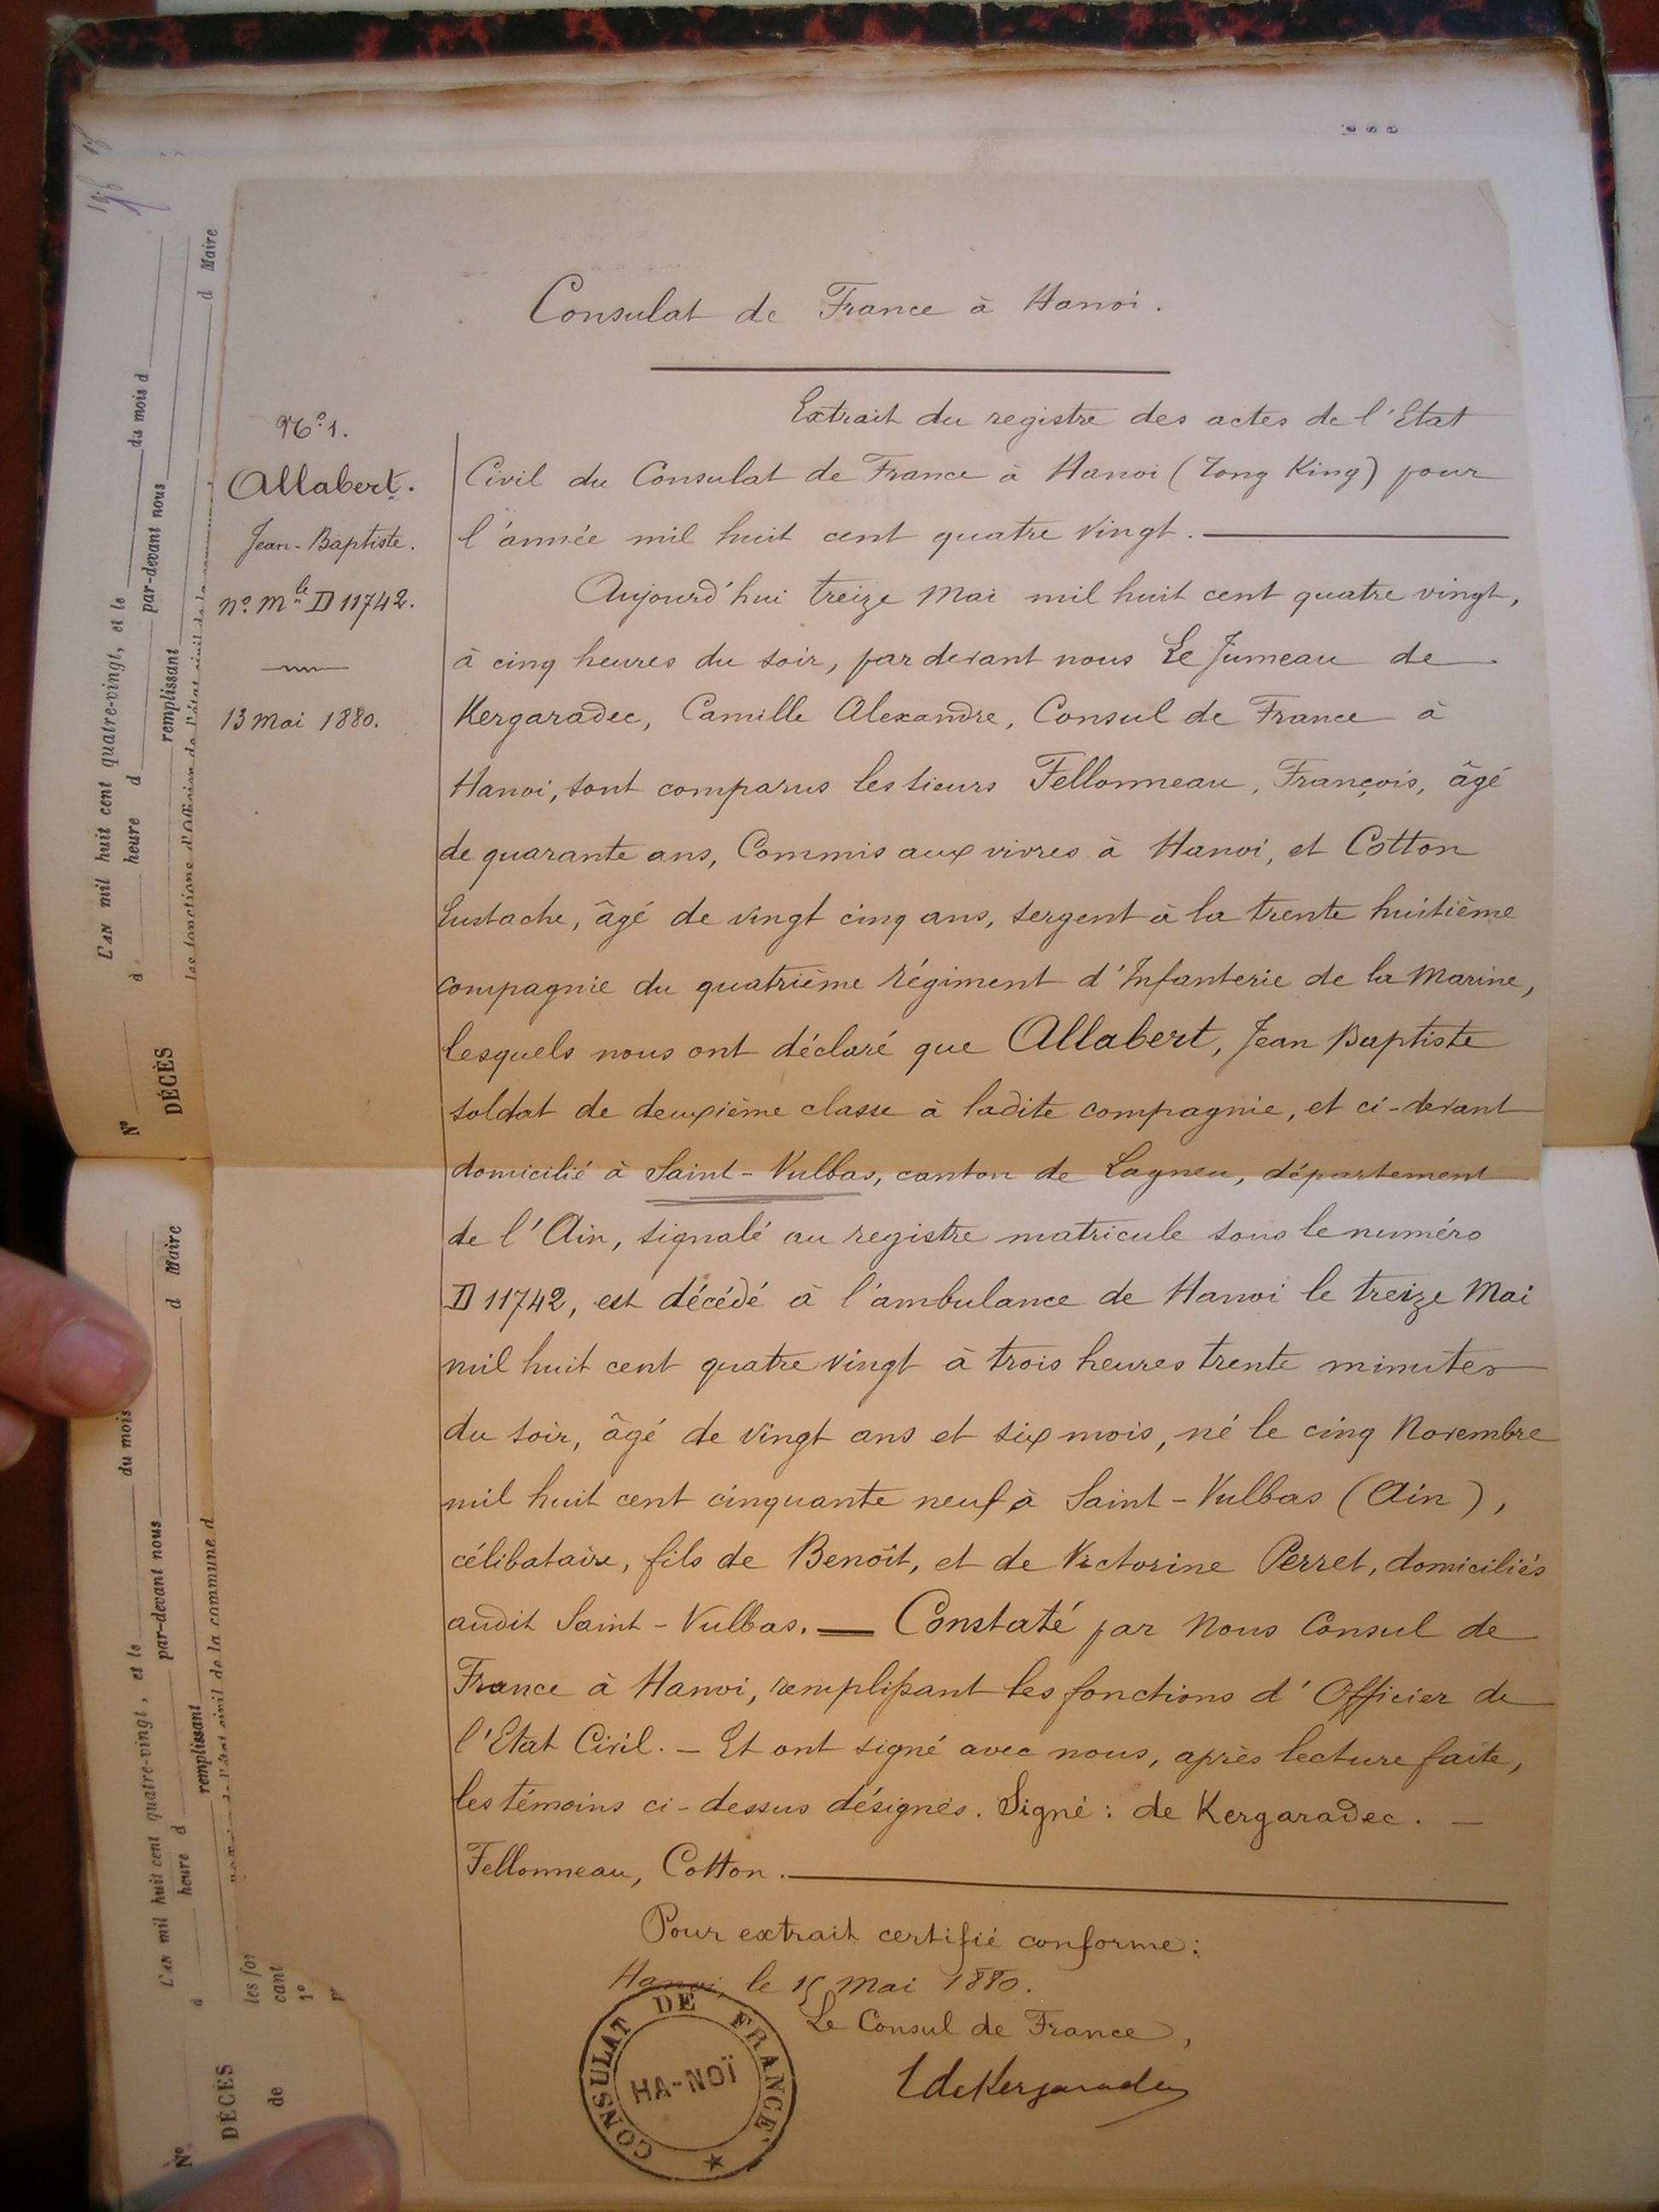 Consulat de France à Hanoi.
N° 1.
Allabert.
Jean-Baptiste.
n° mle D 11742.
13 Mai 1880.
Extrait du registre des actes de l'Etat
Civil du Consulat de France à Hanoi (Tong King) pour
l'année mil huit cent quatre vingt.
Aujourd'hui treize Mai mil huit cent quatre vingt,
à cinq heures du soir, par devant nous Le Jumeau de
Kergaradec, Camille Alexandre, Consul de France à
Hanoi, sont comparus les sieurs Fellonneau, François, âgé
de quarante ans, Commis aux vivres à Hanoi, et Cotton
Eustache, âgé de vingt cinq ans, sergent à la trente huitième
compagnie du quatrième régiment d'Infanterie de la Marine,
lesquels nous ont déclaré que Allabert, Jean Baptiste
soldat de deuxième classe à ladite compagnie, et ci-devant
domicilié à Saint-Vulbas, canton de Lagneu, département
de l'Ain, signalé au registre matricule sous le numéro
D 11742, est décédé à l'ambulance de Hanoi le treize Mai
mil huit cent quatre vingt à trois heures trente minutes
du soir, âgé de vingt ans et six mois, né le cinq Novembre
mil huit cent cinquante neuf à Saint-Vulbas (Ain),
célibataire, fils de Benoît, et de Victorine Perret, domiciliés
audit Saint-Vulbas. — Constaté par Nous Consul de
France à Hanoi, remplissant les fonctions d'Officier de
l'Etat Civil. — Et ont signé avec nous, après lecture faite,
les témoins ci-dessus désignés. Signé : de Kergaradec. —
Fellonneau, Cotton.
Pour extrait certifié conforme :
Hanoi, le 15 Mai 1880.
Le Consul de France,
CONSULAT DE FRANCE
HA-NOÏ
de Kergaradec
N°
DÉCÈS
L'AN mil huit cent quatre-vingt, et le du mois d
à heure d par-devant nous
remplissant d Maire
les fonctions d'Officier de l'état civil de la
N°
DÉCÈS
de
L'AN mil huit cent quatre-vingt, et le du mois
à heure d par-devant nous
remplissant d Maire
de l'état civil de la commune d
les fo
cant
1°